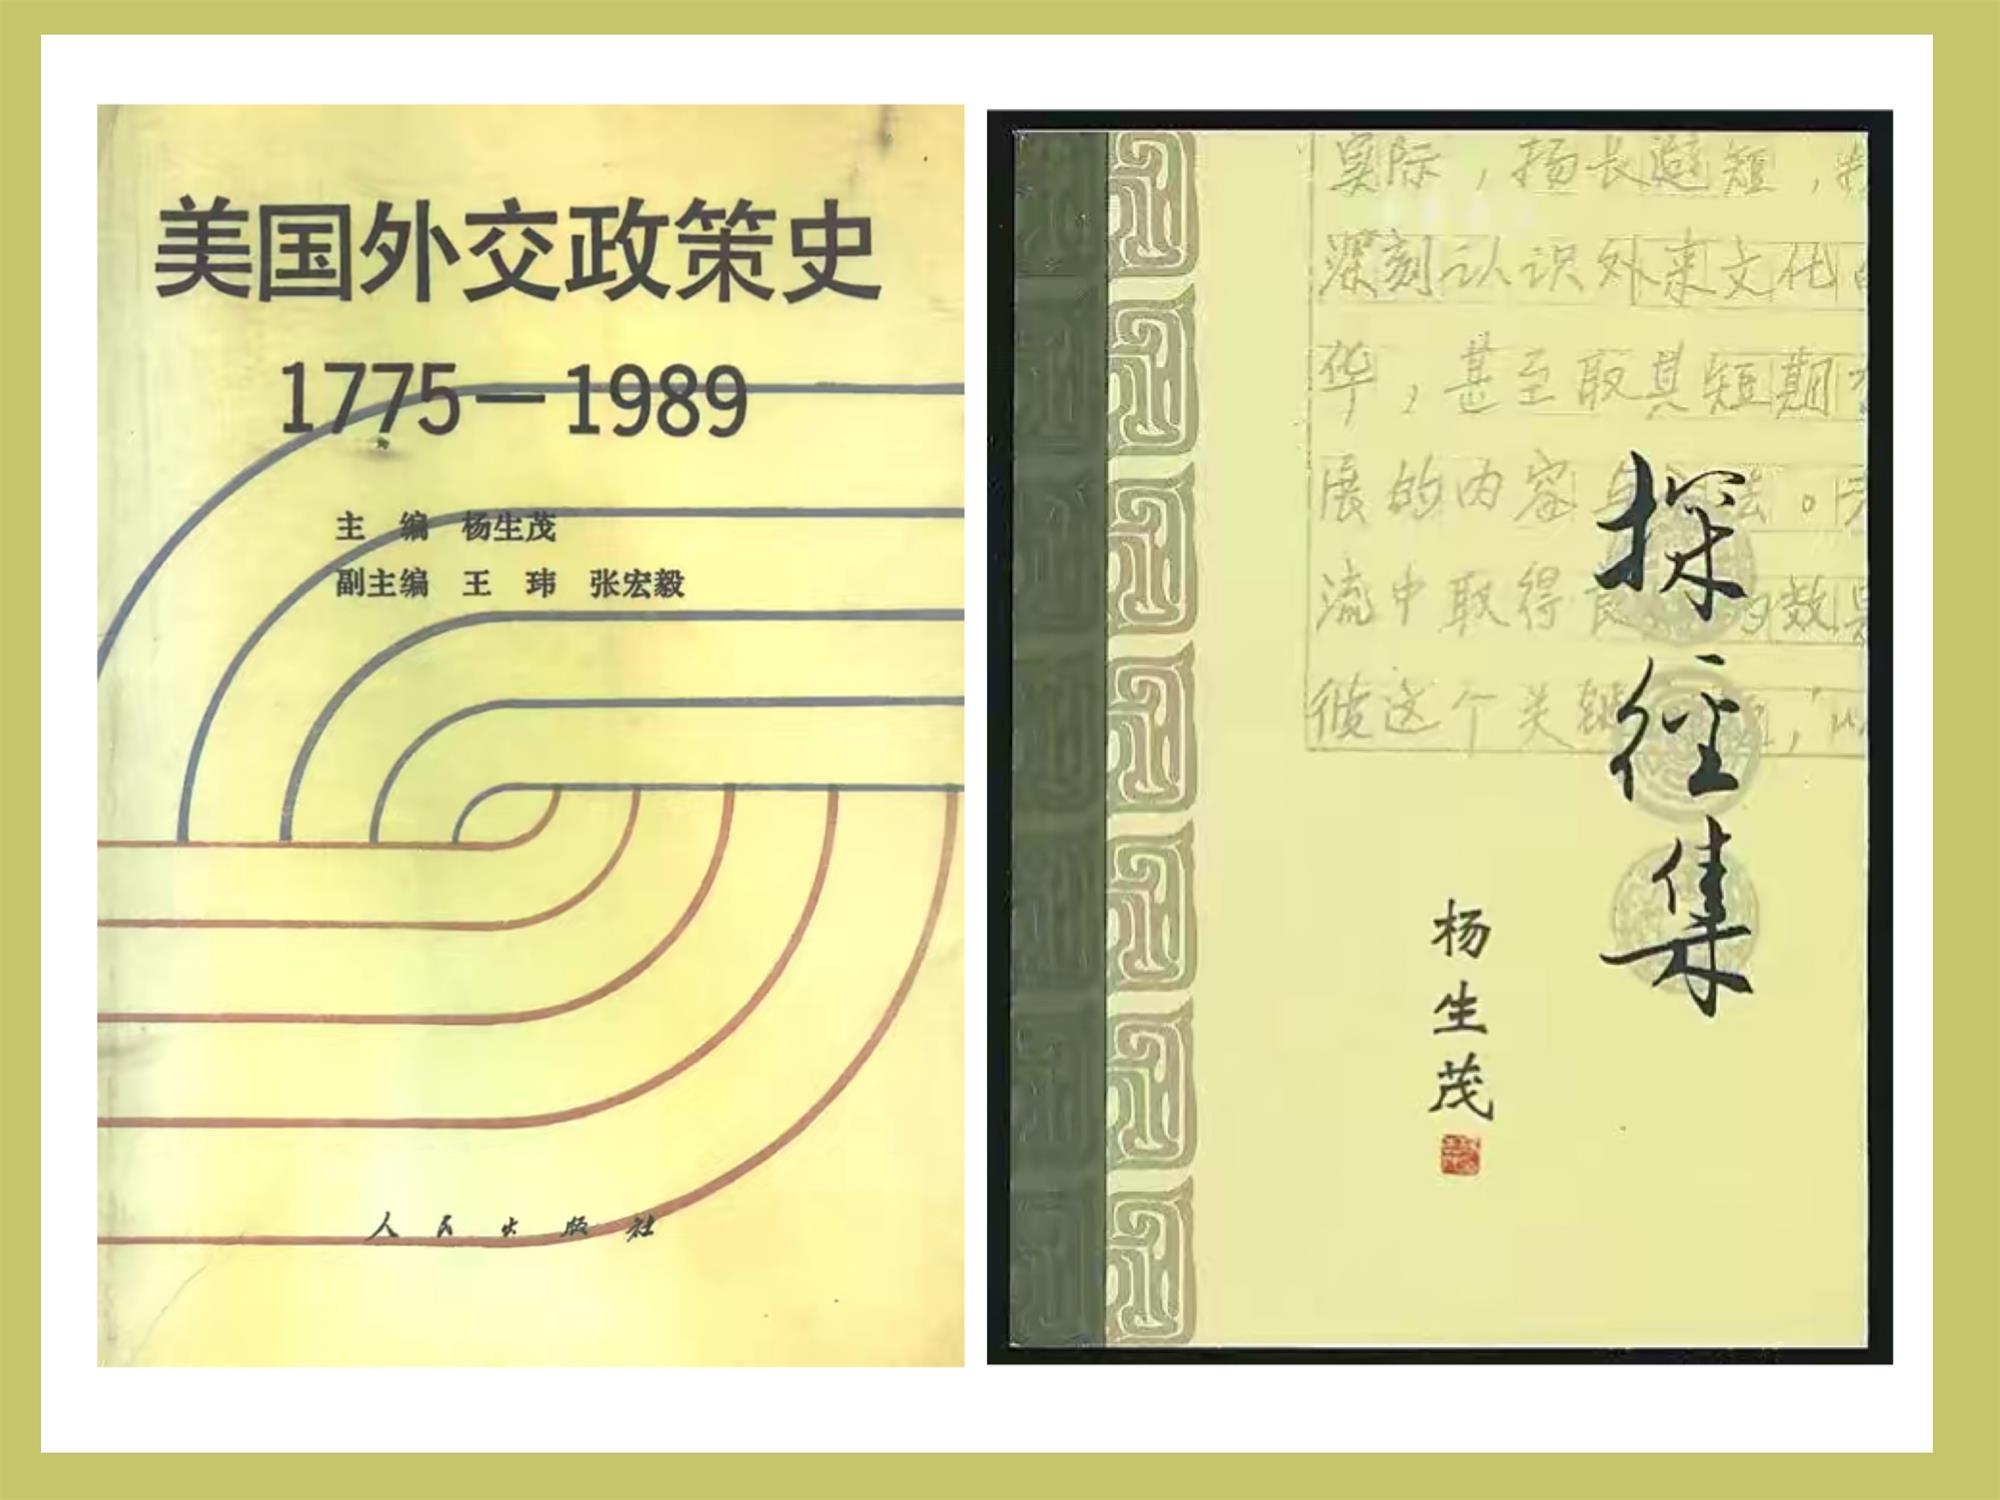 美国外交政策史
1775—1989
主编 杨生茂
副主编 王玮 张宏毅
人民出版社
实际，扬长避短，
深刻认识外来文化
华，甚至取其短期
展的内容
流中取得 效
做这个关键
探径集
杨生茂